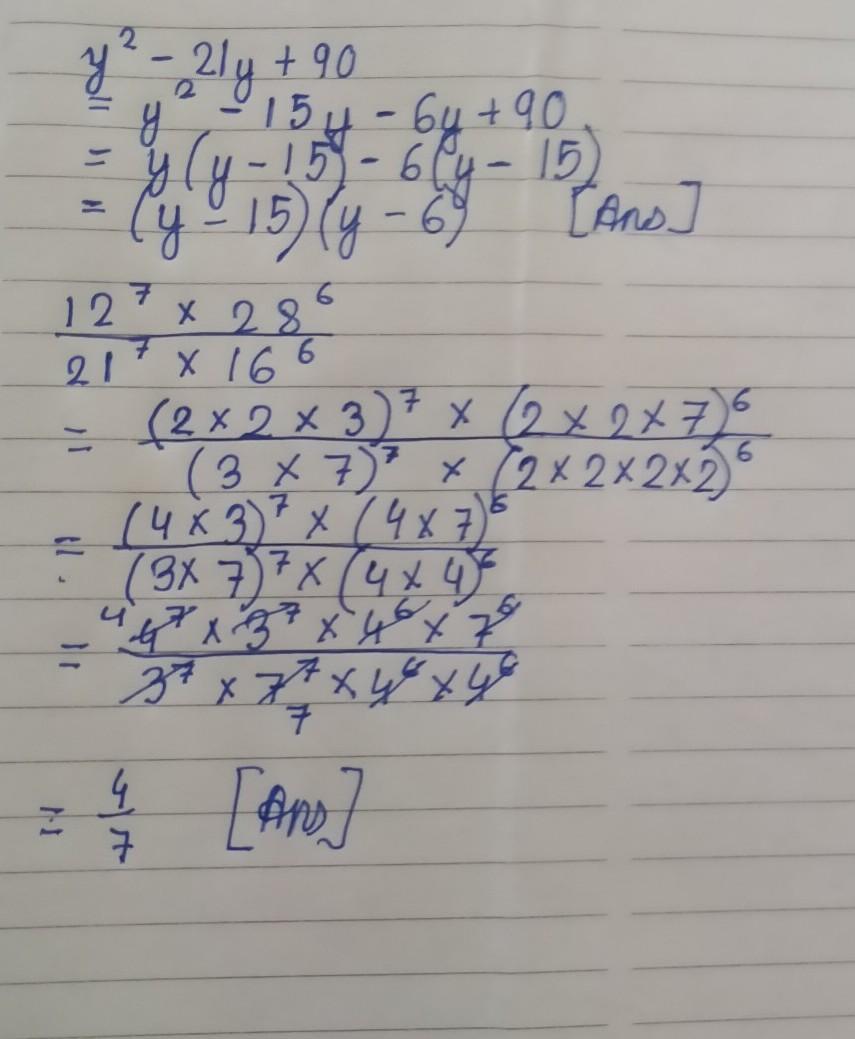 y² - 21y + 90
= y² - 15y - 6y + 90
= y(y - 15) - 6(y - 15)
= (y - 15)(y - 6) [Ans]
12⁷ × 28⁶
21⁷ × 16⁶
= (2 × 2 × 3)⁷ × (2 × 2 × 7)⁶
(3 × 7)⁷ × (2 × 2 × 2 × 2)⁶
= (4 × 3)⁷ × (4 × 7)⁶
(3 × 7)⁷ × (4 × 4)⁶
= 4 4⁷ × 3⁷ × 4⁶ × 7⁶
3⁷ × 7⁷ × 4⁶ × 4⁶
7
= 4
7 [Ans]